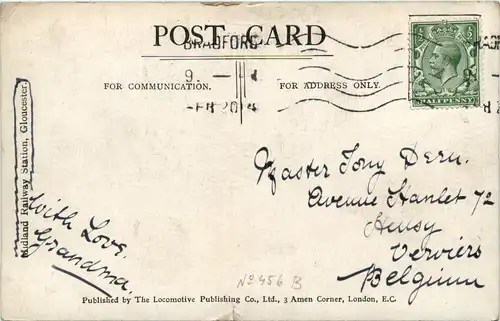 POST CARD
BRADFORD
FOR COMMUNICATION.
FOR ADDRESS ONLY.
HALFPENNY
Midland Railway Station, Gloucester.
With Love.
Grandma.
Master Tony Dern.
Avenue Hanlet 72
Heusy
Verviers
Belgium
No 456 B
Published by The Locomotive Publishing Co., Ltd., 3 Amen Corner, London, E.C.